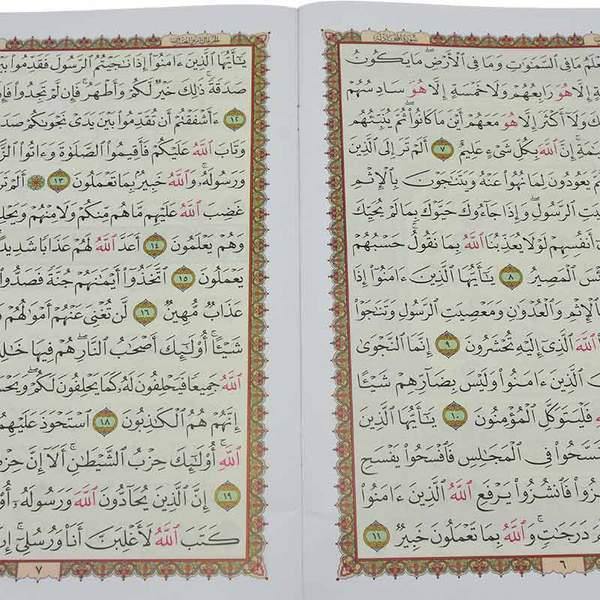 يَعْلَمُ مَا فِى ٱلسَّمَٰوَٰتِ وَمَا فِى ٱلْأَرْضِ ۖ مَا يَكُونُ
إِلَّا هُوَ رَابِعُهُمْ وَلَا خَمْسَةٍ إِلَّا هُوَ سَادِسُهُمْ
وَلَآ أَكْثَرَ إِلَّا هُوَ مَعَهُمْ أَيْنَ مَا كَانُوا۟ ۖ ثُمَّ يُنَبِّئُهُم
إِنَّ ٱللَّهَ بِكُلِّ شَىْءٍ عَلِيمٌ ٧ أَلَمْ تَرَ إِلَى ٱلَّذِينَ
يَعُودُونَ لِمَا نُهُوا۟ عَنْهُ وَيَتَنَٰجَوْنَ بِٱلْإِثْمِ
ٱلرَّسُولِ وَإِذَا جَآءُوكَ حَيَّوْكَ بِمَا لَمْ يُحَيِّكَ
أَنفُسِهِمْ لَوْلَا يُعَذِّبُنَا ٱللَّهُ بِمَا نَقُولُ ۚ حَسْبُهُمْ
ٱلْمَصِيرُ ٨ يَٰٓأَيُّهَا ٱلَّذِينَ ءَامَنُوٓا۟ إِذَا
بِٱلْإِثْمِ وَٱلْعُدْوَٰنِ وَمَعْصِيَتِ ٱلرَّسُولِ وَتَنَٰجَوْا۟
ٱللَّهَ ٱلَّذِىٓ إِلَيْهِ تُحْشَرُونَ ٩ إِنَّمَا ٱلنَّجْوَىٰ
ٱلَّذِينَ ءَامَنُوا۟ وَلَيْسَ بِضَآرِّهِمْ شَيْـًٔا
فَلْيَتَوَكَّلِ ٱلْمُؤْمِنُونَ ١٠ يَٰٓأَيُّهَا ٱلَّذِينَ
تَفَسَّحُوا۟ فِى ٱلْمَجَٰلِسِ فَٱفْسَحُوا۟ يَفْسَحِ
فَٱنشُزُوا۟ يَرْفَعِ ٱللَّهُ ٱلَّذِينَ ءَامَنُوا۟
دَرَجَٰتٍ ۚ وَٱللَّهُ بِمَا تَعْمَلُونَ خَبِيرٌ ١١
٦
يَٰٓأَيُّهَا ٱلَّذِينَ ءَامَنُوٓا۟ إِذَا نَٰجَيْتُمُ ٱلرَّسُولَ فَقَدِّمُوا۟ بَيْنَ
صَدَقَةً ۚ ذَٰلِكَ خَيْرٌ لَّكُمْ وَأَطْهَرُ ۚ فَإِن لَّمْ تَجِدُوا۟ فَإِنَّ
١٢ ءَأَشْفَقْتُمْ أَن تُقَدِّمُوا۟ بَيْنَ يَدَىْ نَجْوَىٰكُمْ
وَتَابَ ٱللَّهُ عَلَيْكُمْ فَأَقِيمُوا۟ ٱلصَّلَوٰةَ وَءَاتُوا۟
وَرَسُولَهُۥ ۚ وَٱللَّهُ خَبِيرٌۢ بِمَا تَعْمَلُونَ ١٣ أَلَمْ تَرَ
غَضِبَ ٱللَّهُ عَلَيْهِم مَّا هُم مِّنكُمْ وَلَا مِنْهُمْ
وَهُمْ يَعْلَمُونَ ١٤ أَعَدَّ ٱللَّهُ لَهُمْ عَذَابًا شَدِيدًا
يَعْمَلُونَ ١٥ ٱتَّخَذُوٓا۟ أَيْمَٰنَهُمْ جُنَّةً فَصَدُّوا۟
عَذَابٌ مُّهِينٌ ١٦ لَّن تُغْنِىَ عَنْهُمْ أَمْوَٰلُهُمْ
شَيْـًٔا ۚ أُو۟لَٰٓئِكَ أَصْحَٰبُ ٱلنَّارِ ۖ هُمْ فِيهَا
ٱللَّهُ جَمِيعًا فَيَحْلِفُونَ لَهُۥ كَمَا يَحْلِفُونَ لَكُمْ ۖ
إِنَّهُمْ هُمُ ٱلْكَٰذِبُونَ ١٨ ٱسْتَحْوَذَ عَلَيْهِمُ
ٱللَّهِ ۚ أُو۟لَٰٓئِكَ حِزْبُ ٱلشَّيْطَٰنِ ۚ أَلَآ إِنَّ حِزْبَ
١٩ إِنَّ ٱلَّذِينَ يُحَآدُّونَ ٱللَّهَ وَرَسُولَهُۥٓ
كَتَبَ ٱللَّهُ لَأَغْلِبَنَّ أَنَا۠ وَرُسُلِىٓ ۚ إِنَّ
٧